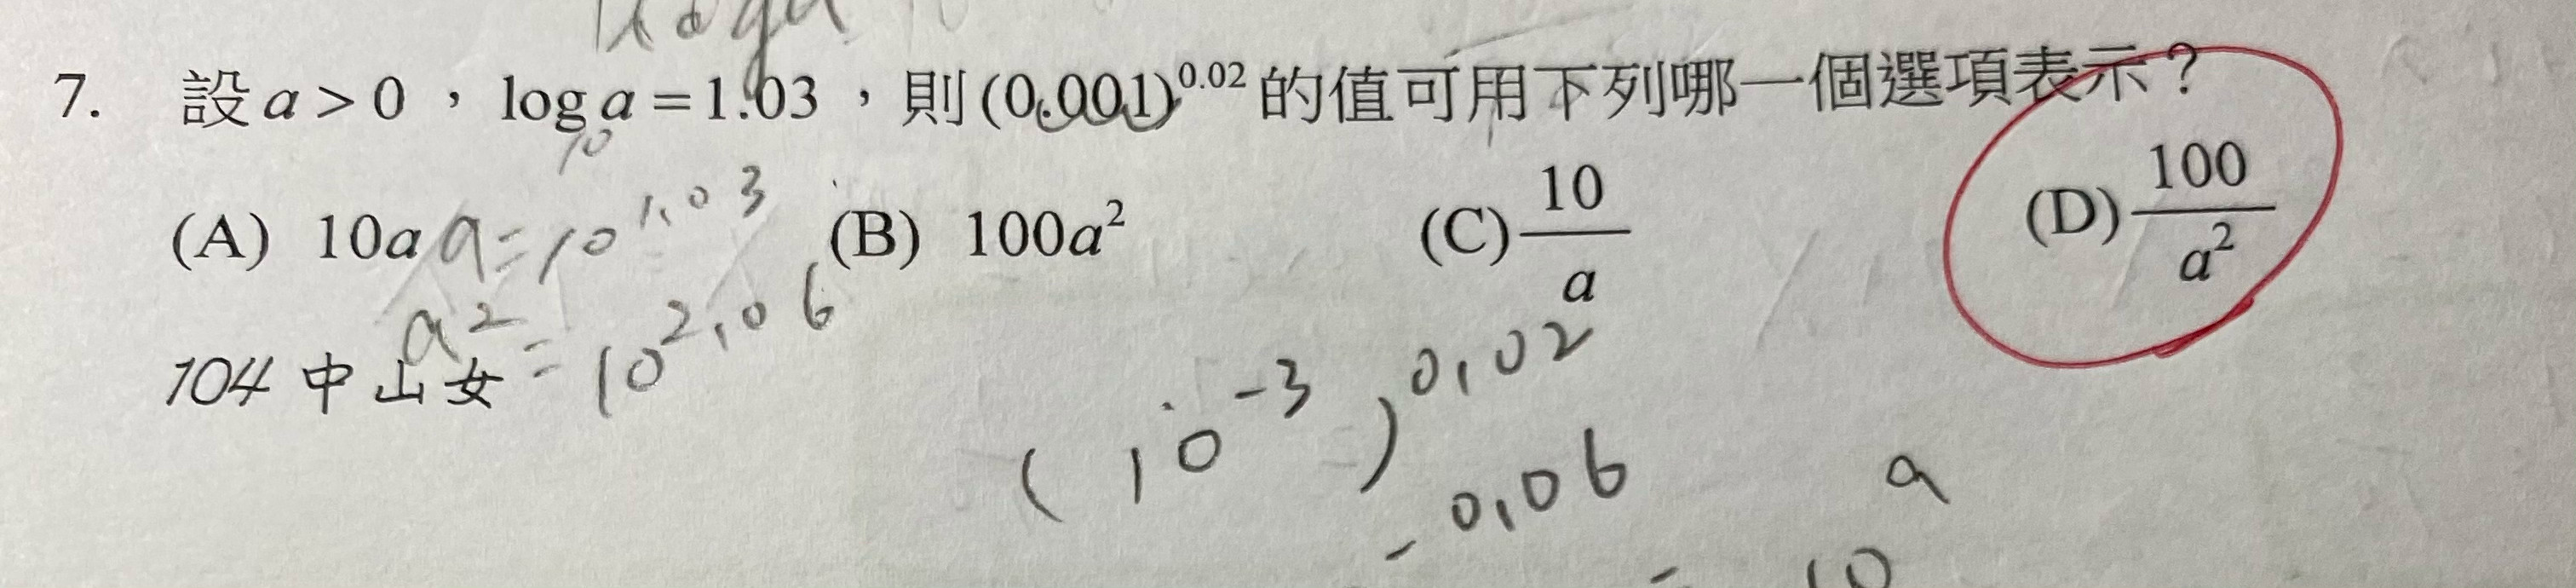 7. 設 a > 0 ， log a = 1.03 ，則 (0.001)^0.02 的值可用下列哪一個選項表示？
10
(A) 10a (B) 100a² (C) 10/a (D) 100/a²
a = 10^1.03
a² = 10^2.06
104 中山女
(10^-3)^0.02
-0.06
a
= 10